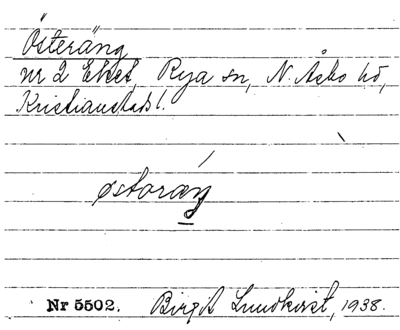 Österäng
nr 2 Eket, Rya sn, N. Åsbo hd,
Kristianstads l.
østoræŋ
Nr 5502. Birgit Lundkvist, 1938.